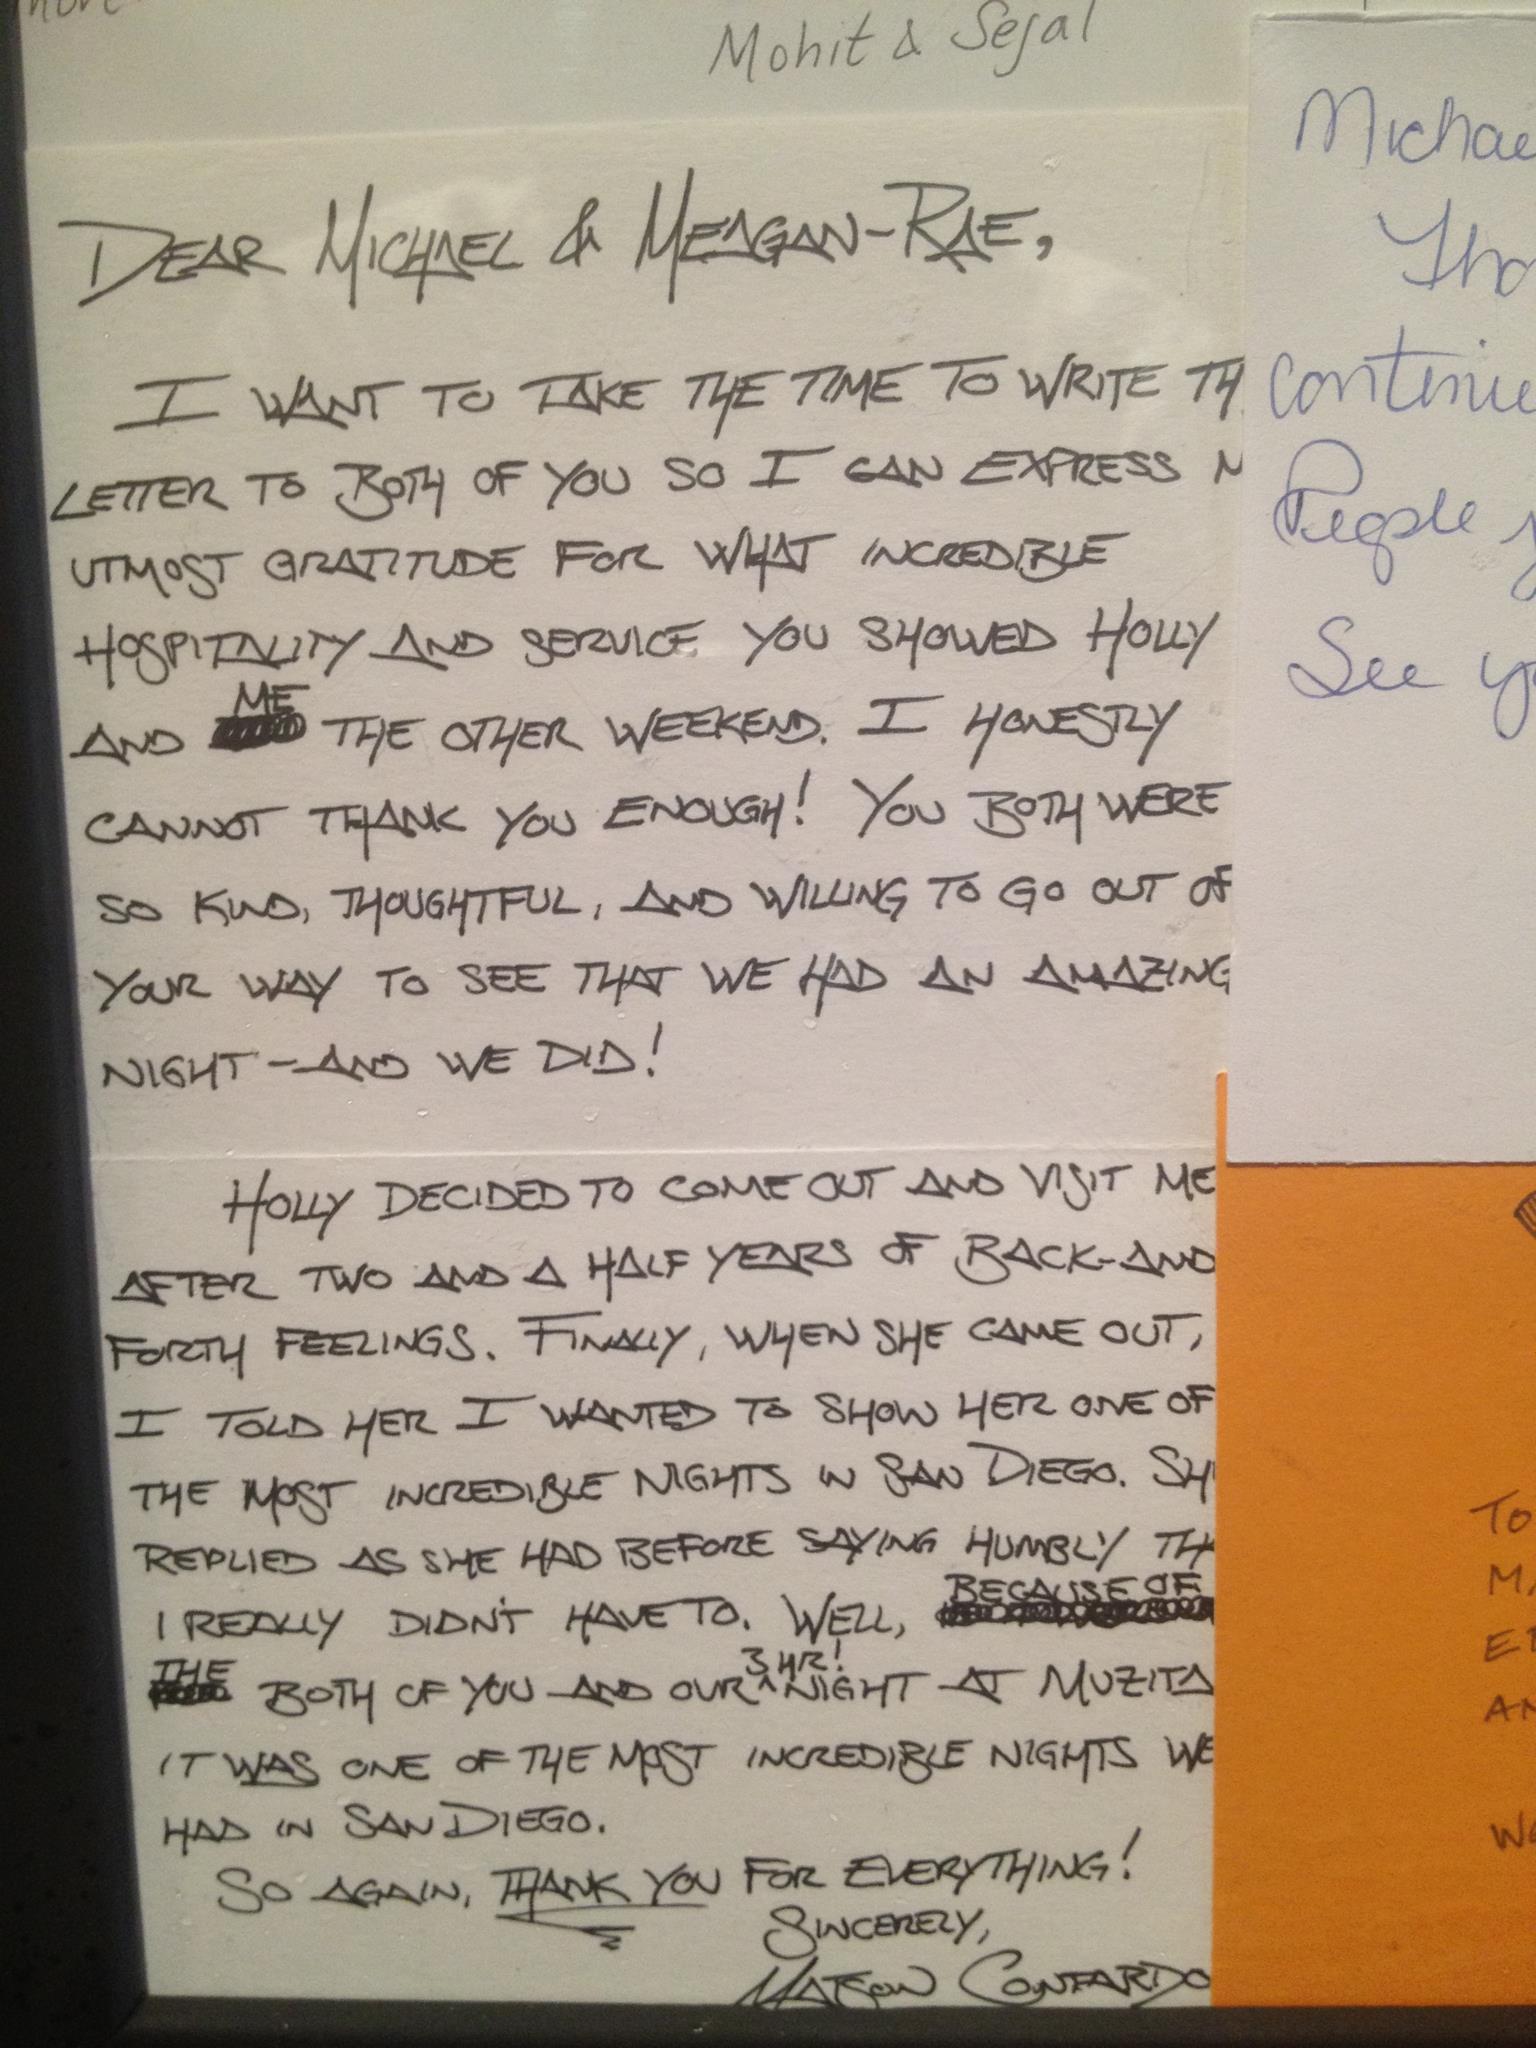 Mohit & Sejal
DEAR MICHAEL & MEAGAN-RAE,
I WANT TO TAKE THE TIME TO WRITE TH
LETTER TO BOTH OF YOU SO I CAN EXPRESS M
UTMOST GRATITUDE FOR WHAT INCREDIBLE
HOSPITALITY AND SERVICE YOU SHOWED HOLLY
AND ME THE OTHER WEEKEND. I HONESTLY
CANNOT THANK YOU ENOUGH! YOU BOTH WERE
SO KIND, THOUGHTFUL, AND WILLING TO GO OUT OF
YOUR WAY TO SEE THAT WE HAD AN AMAZING
NIGHT - AND WE DID!
HOLLY DECIDED TO COME OUT AND VISIT ME
AFTER TWO AND A HALF YEARS OF BACK-AND
FORTH FEELINGS. FINALLY, WHEN SHE CAME OUT,
I TOLD HER I WANTED TO SHOW HER ONE OF
THE MOST INCREDIBLE NIGHTS IN SAN DIEGO. SH
REPLIED AS SHE HAD BEFORE SAYING HUMBLY TH
I REALLY DIDN'T HAVE TO. WELL, BECAUSE OF
THE BOTH OF YOU AND OUR 3 HR! NIGHT AT MUZITA
IT WAS ONE OF THE MOST INCREDIBLE NIGHTS WE
HAD IN SAN DIEGO.
SO AGAIN, THANK YOU FOR EVERYTHING!
SINCERELY,
MATSON CONFARDO
Michae
Tha
continue
People y
See yo
TO
MA
AN